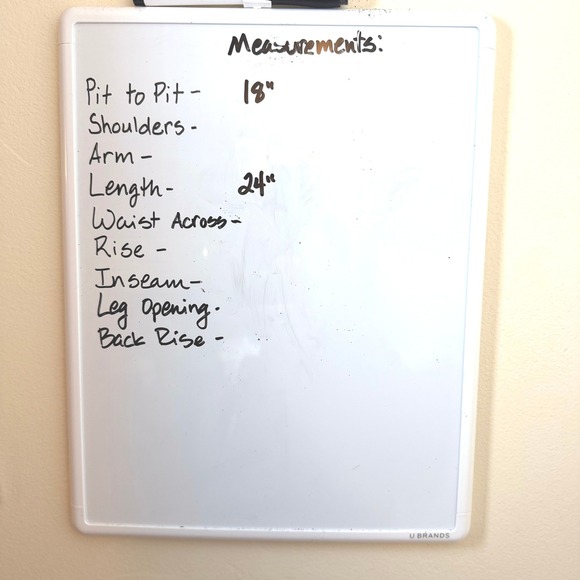 Measurements:
Pit to Pit - 18"
Shoulders -
Arm -
Length - 24"
Waist Across -
Rise -
Inseam -
Leg Opening.
Back Rise -
U BRANDS